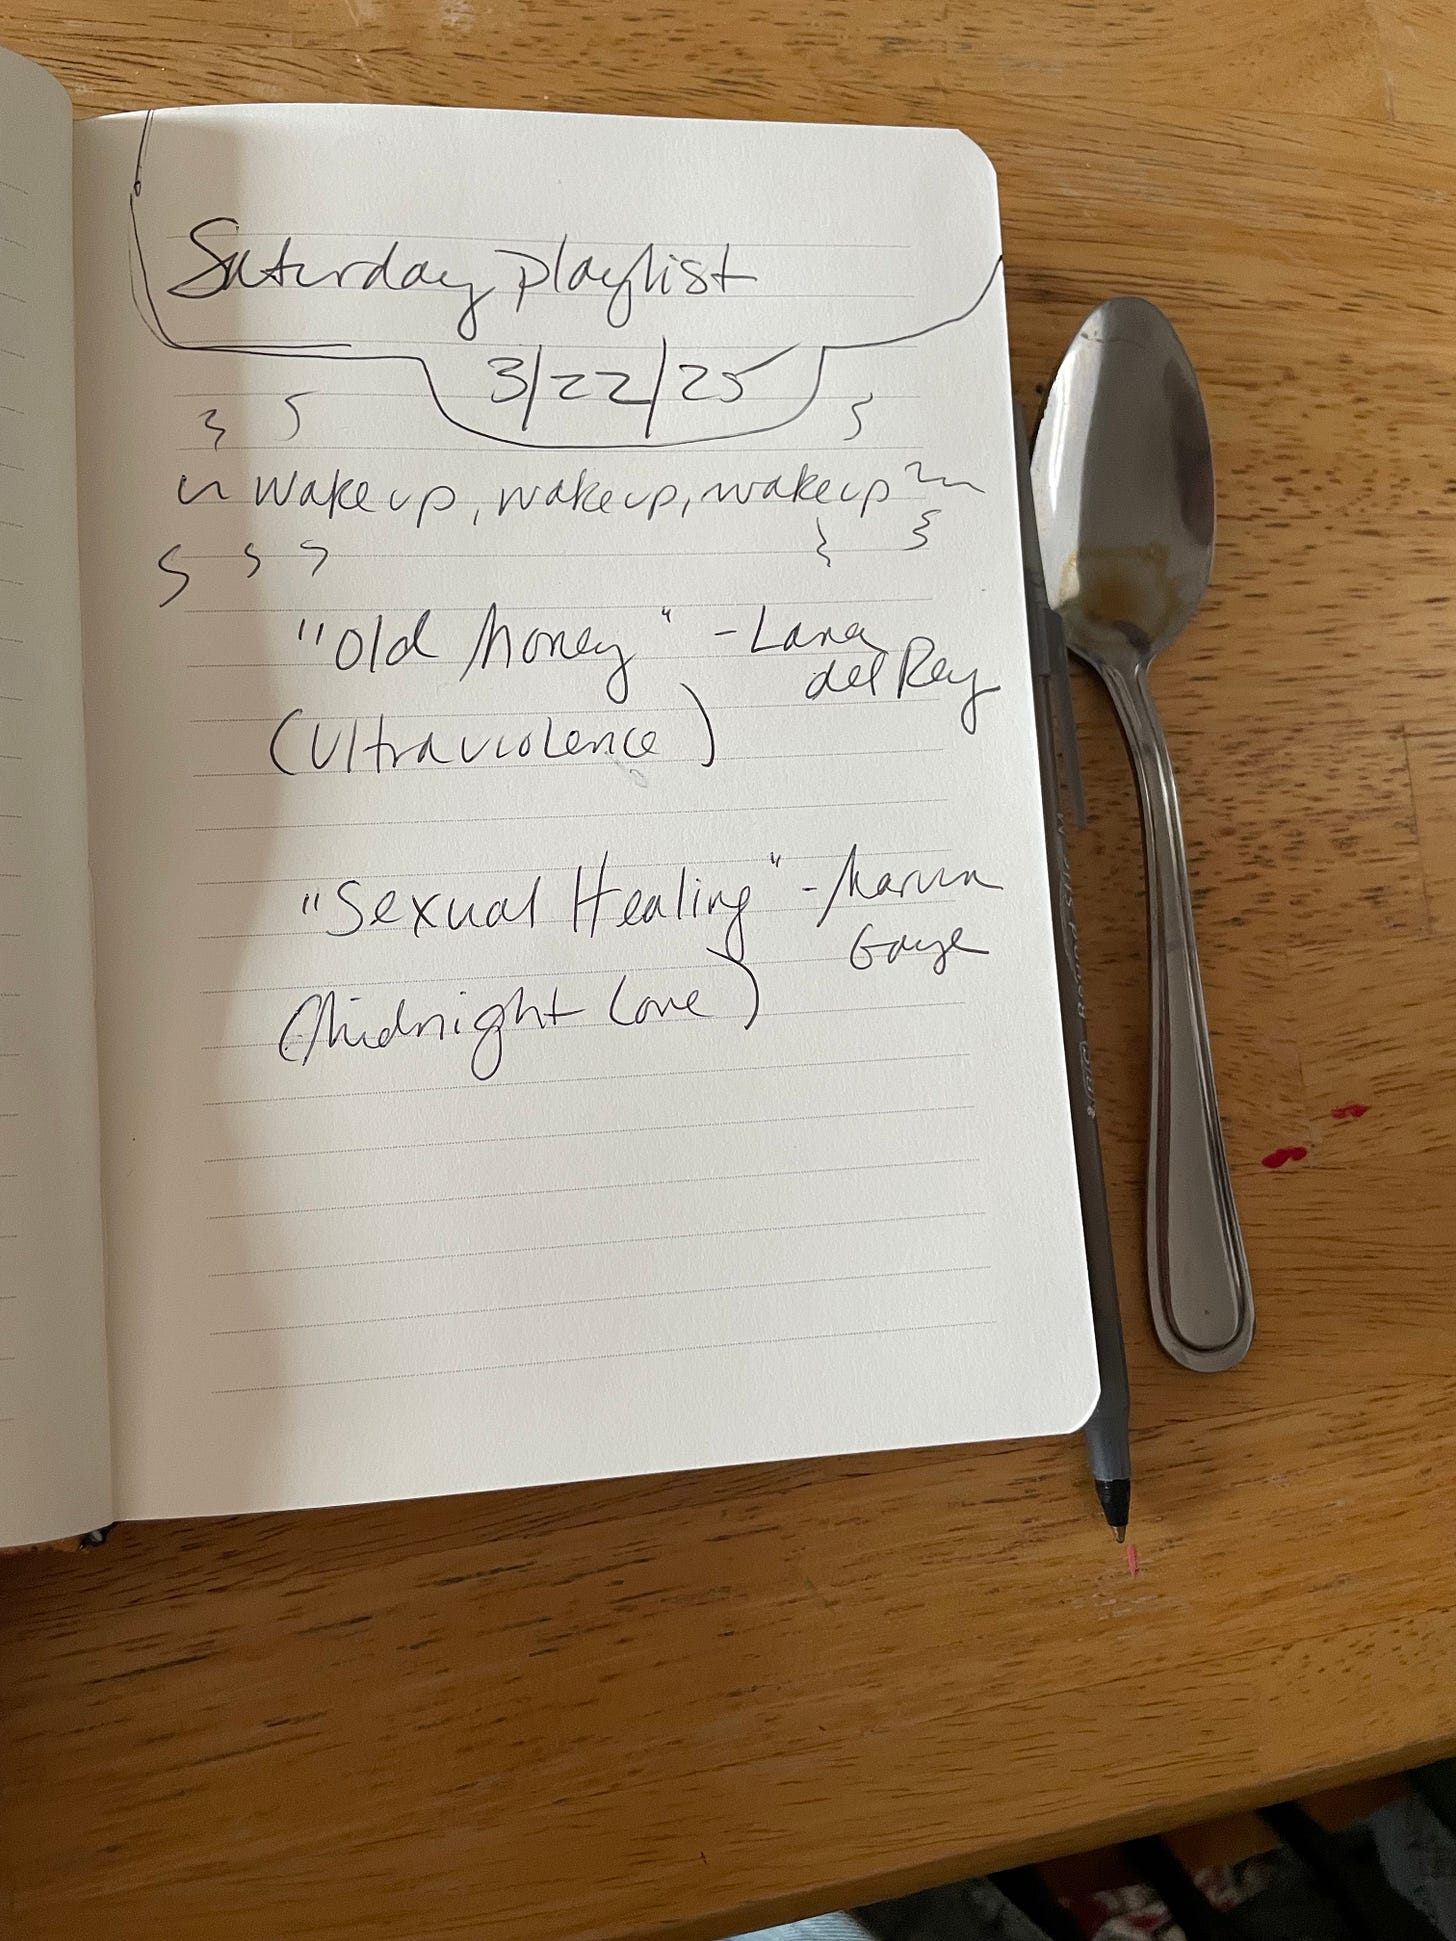 Saturday playlist
3/22/25
wake up, wake up, wake up
"Old Money" - Lana
del Rey
(Ultraviolence)
"Sexual Healing" - Marvin
Gaye
(Midnight Love)
BIC Round Stic M